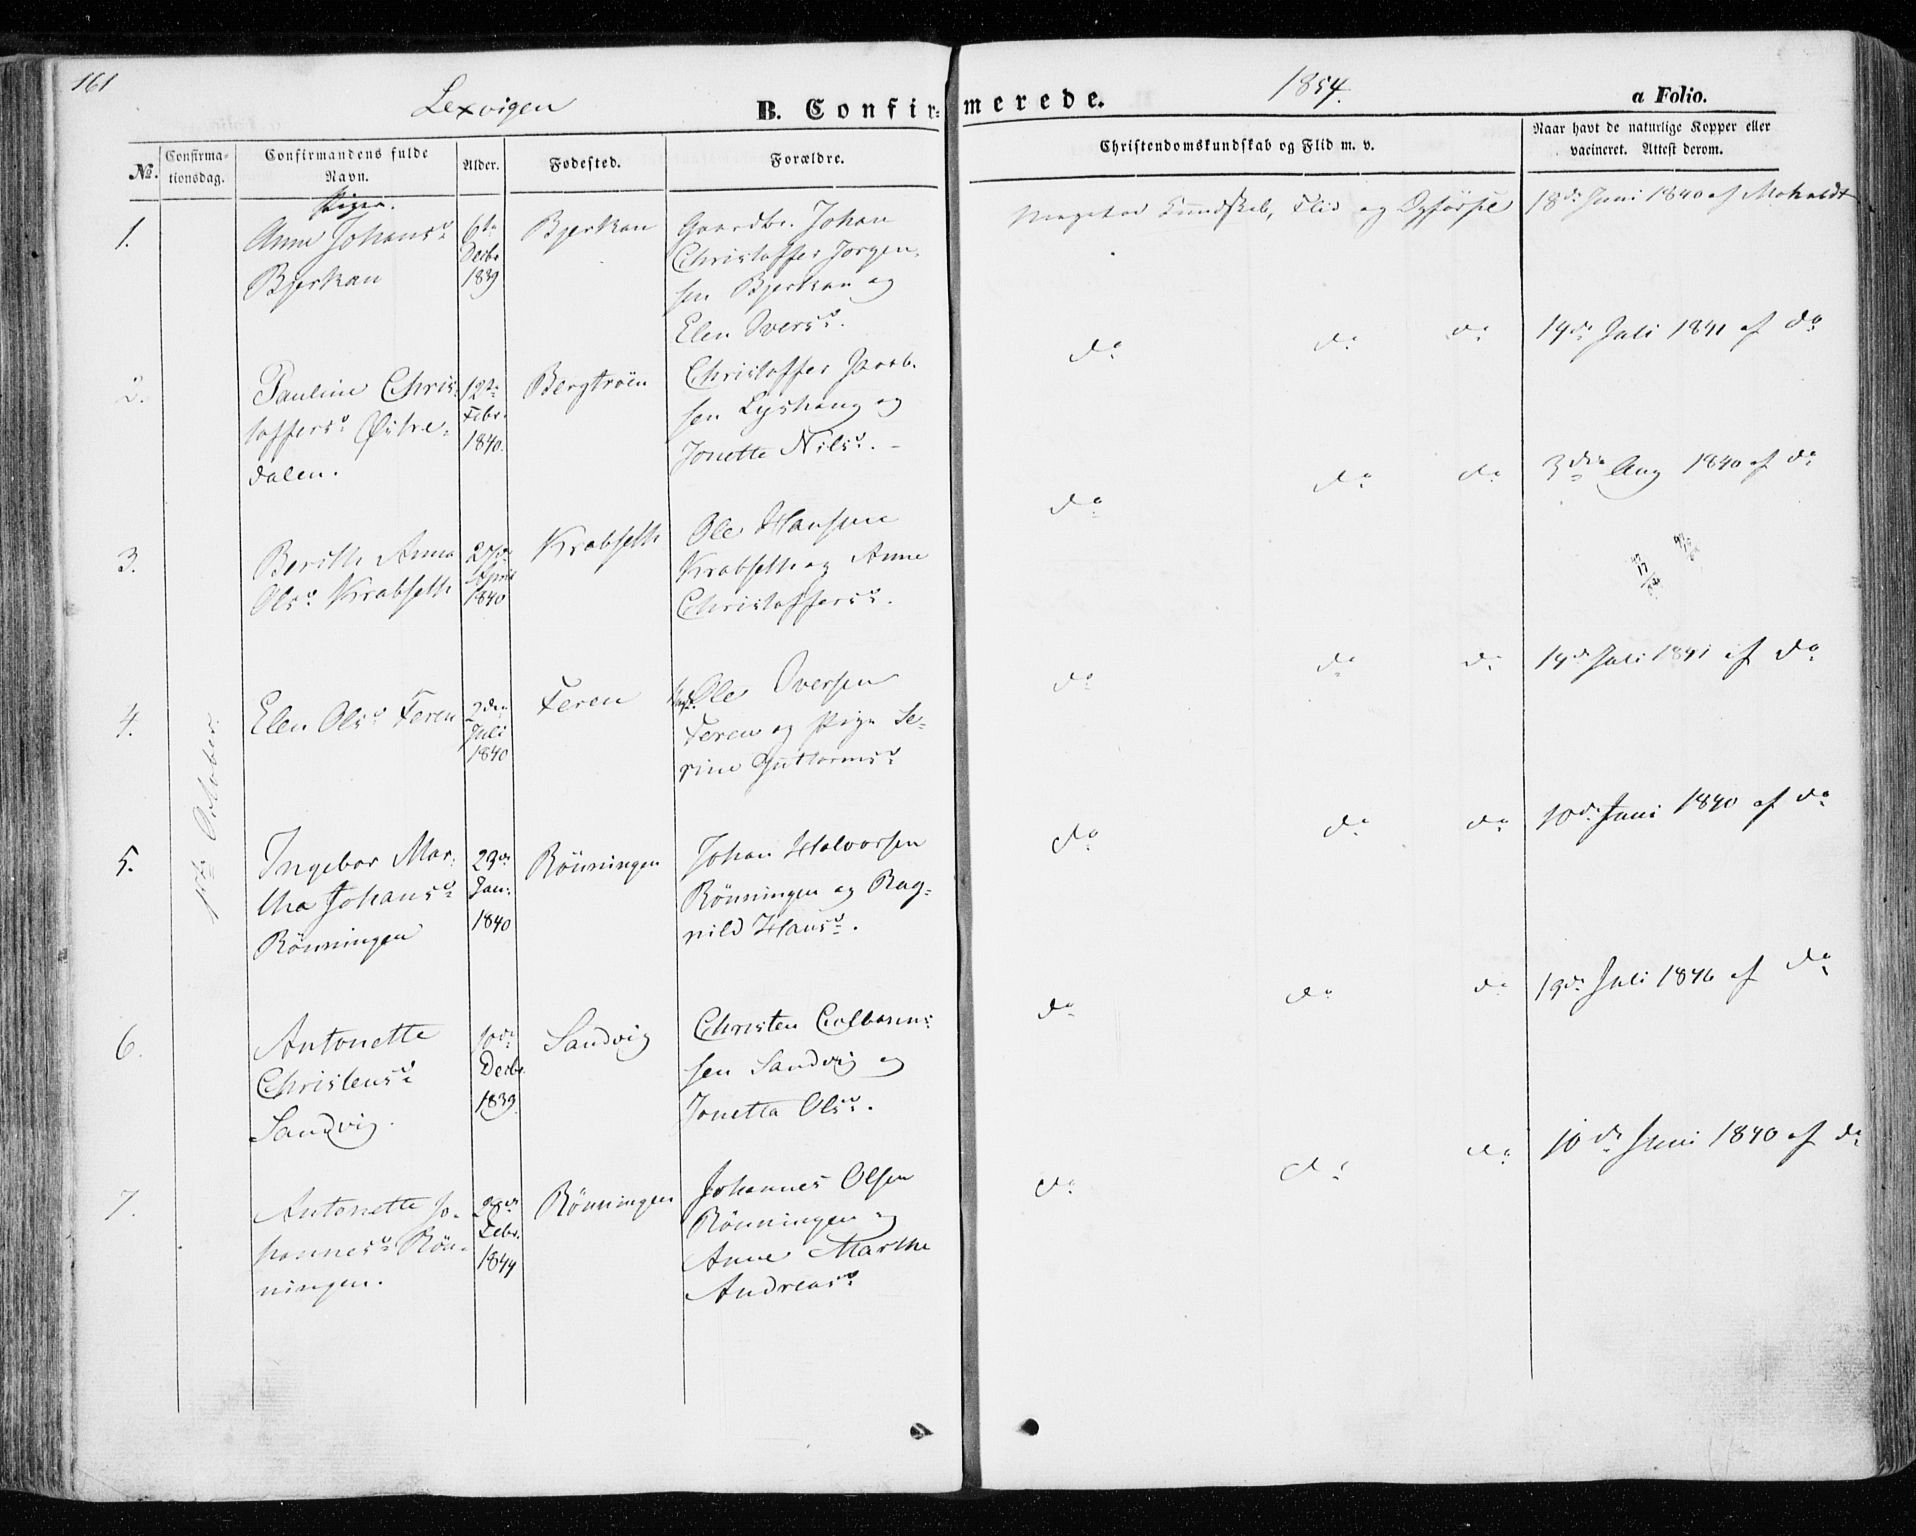 161
Lexvigen
B. Confirmerede.
1854.
a Folio.
No.
Confirma-
tionsdag.
Confirmandens fulde
Navn.
Alder.
Fødested.
Forældre.
Christendomskundskab og Flid m. v.
Naar havt de naturlige Kopper eller
vacineret. Attest derom.
Piger.
1ste October
1.
Anne Johansd.
Bjerkan
6te
Decbr
1839
Bjerkan
Gaardbr. Johan
Christoffer Jørgen-
sen Bjerkan og
Elen Iversd.
Meget god Kundskab, Flid og Opførsel
18de Juni 1840 af Moholdt
2.
Pauline Chris-
toffersd. Østre-
dalen.
12te
Febr.
1840.
Bergtrøen
Christoffer Jacob-
sen Lyshaug og
Jonette Nilsd. -
do do do
14de Juli 1841 af do
3.
Berith Anna
Olsd. Krabseth
27de
April
1840
Krabseth
Ole Hansen
Krabseth og Anne
Christoffersd.
do do do
3die Aug 1840 af do
4.
Elen Olsd. Feren
2den
Juli
1840
Feren
Ole Iversen
Feren og Pige Se-
rine Guttormsd.
do do do
14de Juli 1841 af do
5.
Ingebor Mar-
tha Johansd.
Rönningen
23de
Jan.
1840
Rönningen
Johan Halvorsen
Rönningen og Rag-
nild Hansd.
do do do
10de Juni 1840 af do
6.
Antonette
Christensd.
Sandvig.
10de
Decbr.
1839.
Sandvig
Christen Colborns-
sen Sandvig og
Jonetta Olsd.
do do do
19de Juli 1846 af do
7.
Antonette Jo-
hannesd. Rön-
ningen.
28de
Febr.
Rönningen
Johannes Olsen
Rönningen og
Anne Marthe
Andreasd.
do do do
10de Juni 1840 af do